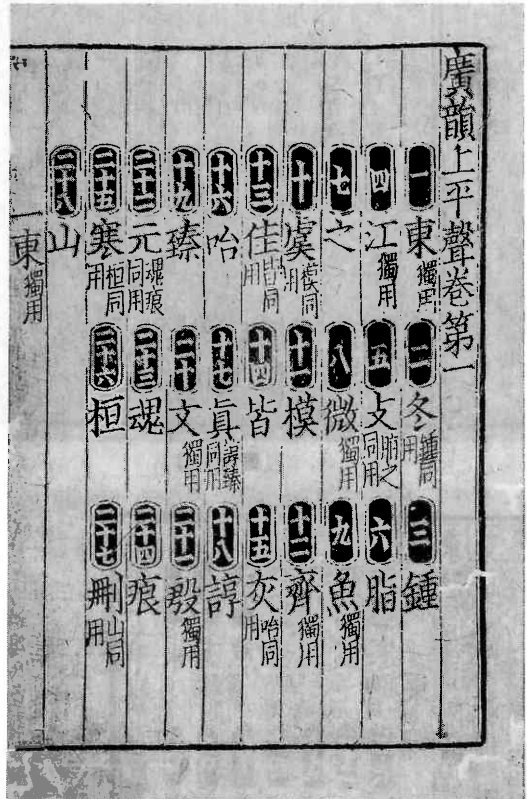 廣韻上平聲卷第一
一東獨用 二冬鍾同用 三鍾
四江獨用 五支脂之同用 六脂
七之 八微獨用 九魚獨用
十虞模同用 十一模 十二齊獨用
十三佳皆同用 十四皆 十五灰咍同用
十六咍 十七眞諄臻同用 十八諄
十九臻 二十文獨用 二十一殷獨用
二十二元魂痕同用 二十三魂 二十四痕
二十五寒桓同用 二十六桓 二十七刪山同用
二十八山
一東獨用